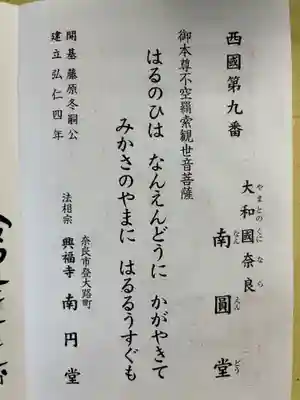 西國第九番
大和國奈良 南圓堂
やまとのくに なら なんえんどう
御本尊不空羂索観世音菩薩
はるのひは なんえんどうに かがやきて
みかさのやまに はるるうすぐも
開基 藤原冬嗣公
建立 弘仁四年
奈良市登大路町
法相宗 興福寺 南円堂